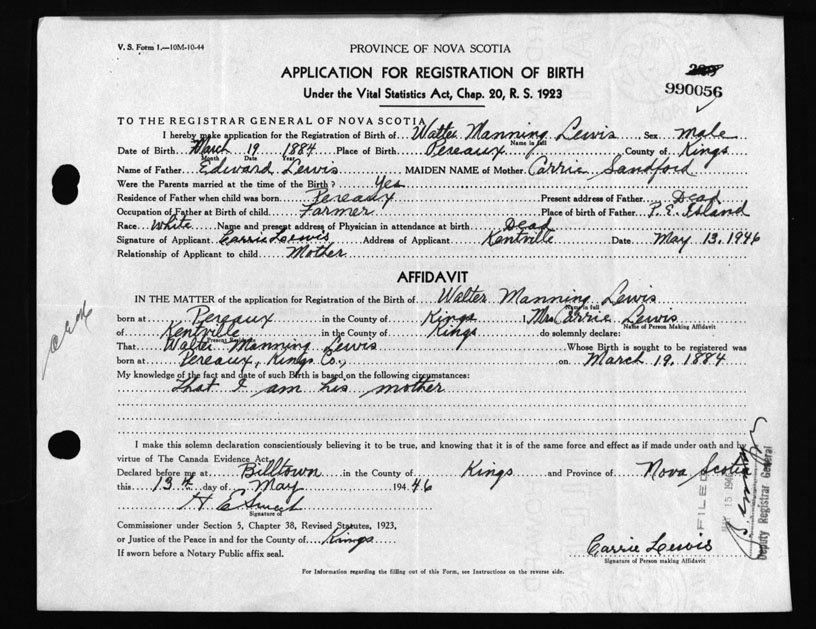 V. S. Form 1.—10M-10-44
PROVINCE OF NOVA SCOTIA
APPLICATION FOR REGISTRATION OF BIRTH
990056
Under the Vital Statistics Act, Chap. 20, R. S. 1923
TO THE REGISTRAR GENERAL OF NOVA SCOTIA
I hereby make application for the Registration of Birth of Walter Manning Lewis Sex male
Name in full
Date of Birth March 19 1884 Place of Birth Pereaux County of Kings
Month Date Year
Name of Father Edward Lewis MAIDEN NAME of Mother Carrie Sandford
Were the Parents married at the time of the Birth? Yes
Residence of Father when child was born Pereaux Present address of Father Dead
Occupation of Father at Birth of child Farmer Place of birth of Father P. E. Island
Race White Name and present address of Physician in attendance at birth Dead
Signature of Applicant Carrie Lewis Address of Applicant Kentville Date May 13, 1946
Relationship of Applicant to child Mother
AFFIDAVIT
IN THE MATTER of the application for Registration of the Birth of Walter Manning Lewis
Name in full
born at Pereaux in the County of Kings I Mrs Carrie Lewis
Name of Person Making Affidavit
of Kentville in the County of Kings do solemnly declare:
Present
That Walter Manning Lewis Whose Birth is sought to be registered was
born at Pereaux, Kings Co., on March 19, 1884
My knowledge of the fact and date of such Birth is based on the following circumstances:
That I am his mother
I make this solemn declaration conscientiously believing it to be true, and knowing that it is of the same force and effect as if made under oath and by
virtue of The Canada Evidence Act.
Declared before me at Billtown in the County of Kings and Province of Nova Scotia
this 13th day of May 1946
H E
Signature of
Commissioner under Section 5, Chapter 38, Revised Statutes, 1923,
or Justice of the Peace in and for the County of Kings
If sworn before a Notary Public affix seal.
Carrie Lewis
Signature of Person making Affidavit
For Information regarding the filling out of this Form, see Instructions on the reverse side.
FILED
15 1946
Deputy Registrar General